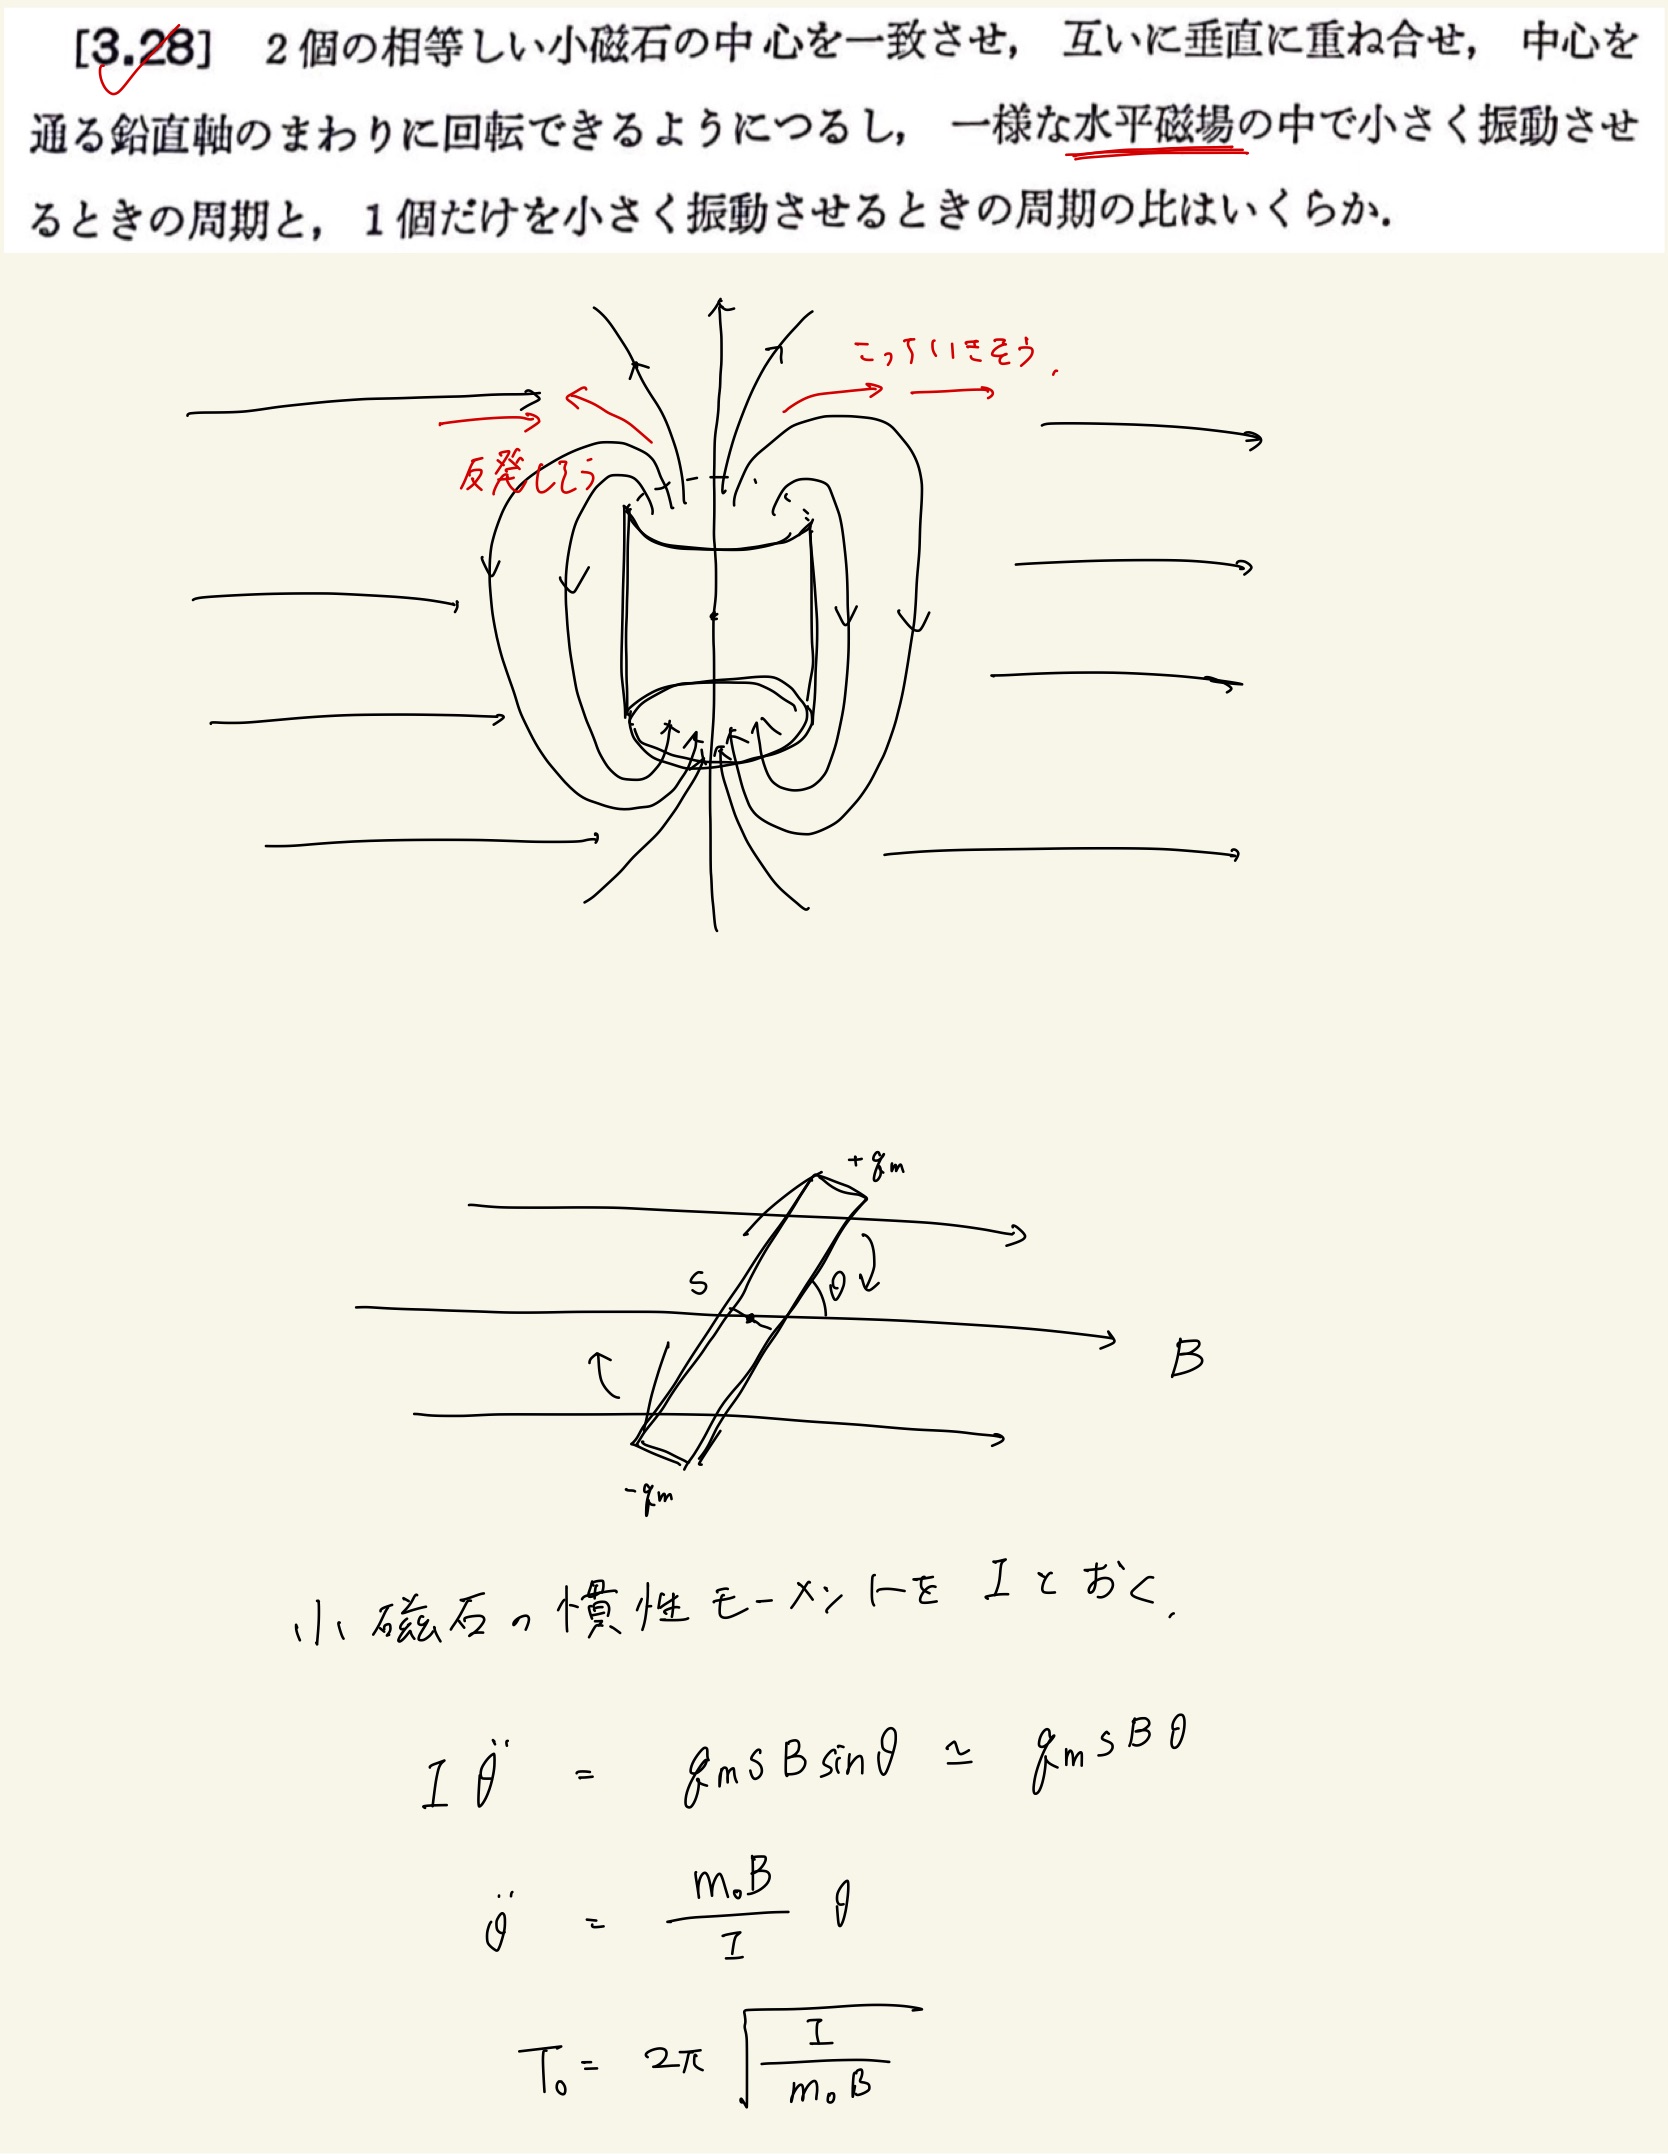 [3.28] 2個の相等しい小磁石の中心を一致させ, 互いに垂直に重ね合せ, 中心を
通る鉛直軸のまわりに回転できるようにつるし, 一様な水平磁場の中で小さく振動させ
るときの周期と, 1個だけを小さく振動させるときの周期の比はいくらか.
こっちいきそう.
反発しそう
+qm
S
θ
B
-qm
小磁石の慣性モーメントを I とおく.
I θ̈ = qm s B sinθ ≃ qm s B θ
θ̈ = m₀B/I θ
T₀ = 2π √(I/m₀B)